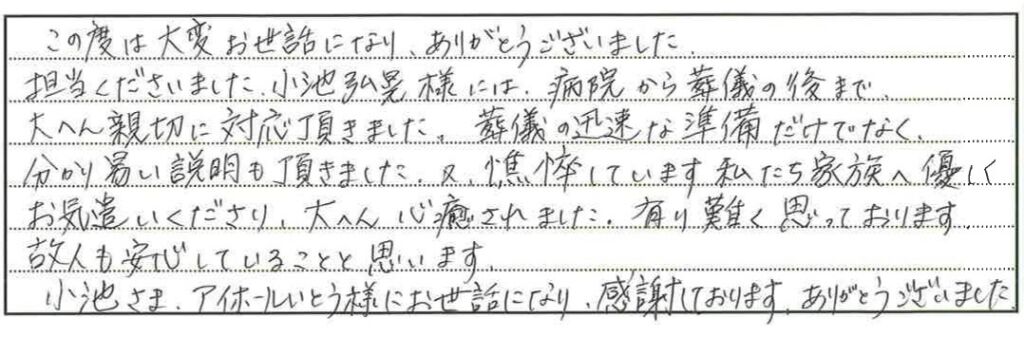 この度は大変お世話になり、ありがとうございました。
担当くださいました、小池弘晃様には、病院から葬儀の後まで、
大へん親切に対応頂きました。葬儀の迅速な準備だけでなく、
分かり易い説明も頂きました。又、憔悴しています私たち家族へ優しく
お気遣いくださり、大へん心癒されました。有り難く思っております。
故人も安心していることと思います。
小池さま、アイホールいとう様にお世話になり、感謝しております。ありがとうございました。